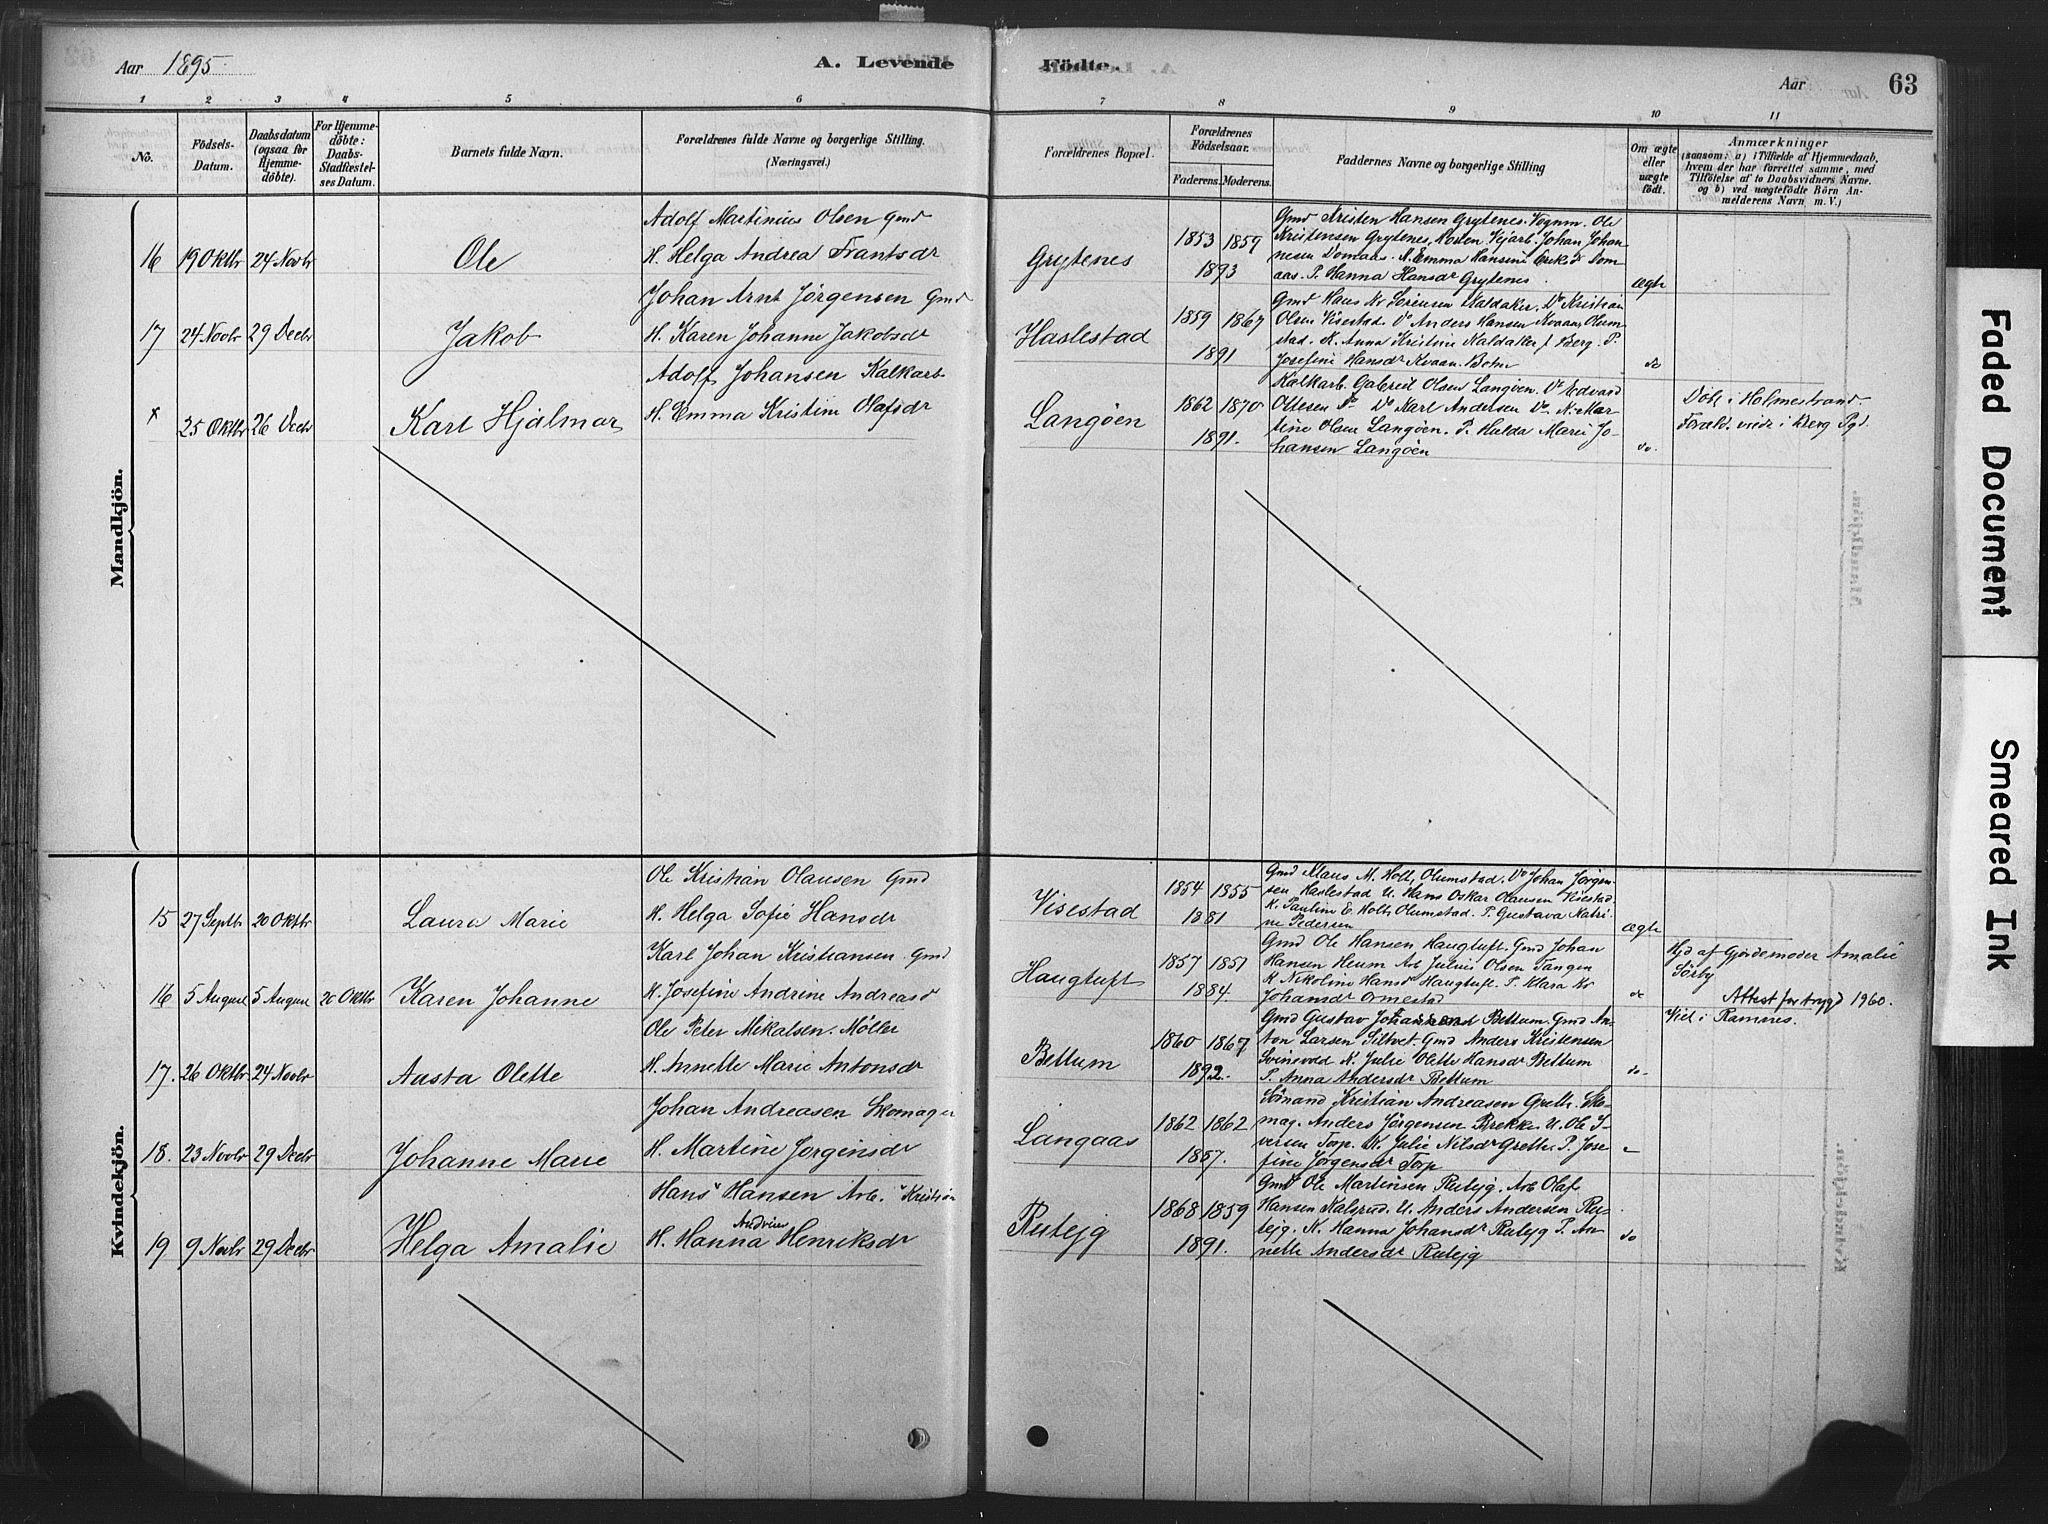 Aar 1895.
A. Levende
Födte.
Aar
63
1 2 3 4 5 6 7 8 9 10 11
No.
Födsels-
Datum.
Daabsdatum
(ogsaa for
Hjemme-
döbte).
For Hjemme-
döbte:
Daabs-
Stadfæstel-
ses Datum.
Barnets fulde Navn.
Forældrenes fulde Navne og borgerlige Stilling.
(Næringsvei.)
Forældrenes Bopæl.
Forældrenes
Födselsaar.
Faderens. Moderens.
Faddernes Navne og borgerlige Stilling
Om ægte
eller
uægte
födt.
Anmærkninger
(saasom: a) i Tilfælde af Hjemmedaab,
hvem der har forrettet samme, med
Tilföielse af to Daabsvidners Navne,
og b) ved uægtefödte Börn An-
melderens Navn m. V.)
Mandkjön.
16 19 Oktbr 24 Novbr
Ole
Adolf Martinius Olsen Gmd
H. Helga Andrea Frantsdr
Grytenes
1853 1859
1893
Gmd Kristen Hansen Grytenes. Vognm. Ole
Kristensen Grytenes, Johan Johan-
nesen Domaas. K. Emma Hansine Dom-
aas. P. Hanna Hansdr Grytenes.
ægte
17 24 Novbr 29 Decbr
Jakob
Johan Arnt Jørgensen Gmd
H. Karen Johanne Jakobsdr
Haslestad
1859 1867
1891
Gmd Hans Kr Sørensen Kaldaker. Do Kristian
Olsen Visestad. Do Anders Hansen Kvaan, Olum-
stad. K. Anna Kristine Kaldaker f Berg. P.
Josefine Hansdr Kvaan. Botne
do
x 25 Oktbr 26 Decbr
Karl Hjalmar
Adolf Johansen Kalkarb.
H. Emma Kristine Olafsdr
Langøen
1862 1870
1891.
Kalkarb. Gabriel Olsen Langøen. Do Edvard
Ottesen Do Do Karl Andersen Do. K. Mar-
tine Olsen Langøen. P. Hulda Marie Jo-
hansen Langøen
do.
Døbt i Holmestrand
Foræld. viede i Berg Pgd.
Kvindekjön.
15 27 Septbr 20 Oktbr
Laura Marie
Ole Kristian Olausen Gmd
H. Helga Sofie Hansdr
Visestad
1854 1855
1881
Gmd Klaus M. Holt, Olumstad. Do Johan Jørgen-
sen Haslestad U. Hans Oskar Olausen Visestad.
K. Pauline E. Holt Olumstad. P. Gustava Katri-
ne Pedersen
ægte
16 5 August 5 August 20 Oktbr
Karen Johanne
Karl Johan Kristiansen Gmd
H. Josefine Andrine Andreasd
Haugtuft
1857 1851
1884
Gmd Ole Hansen Haugtuft. Gmd Johan
Hansen Heum Arb Julius Olsen Tangen
K Nikoline Hansd Haugtuft. P. Klara Kr
Johansdr Ormestad
do
Hjd af Gjordemoder Amalie
Sörby
Attest for trygd 1960.
Viet i Ramnes.
17. 26 Oktbr 24 Novbr
Aasta Olette
Ole Peter Mikalsen. Møller
H. Annette Marie Antonsdr
Bettum
1860 1867
1892.
Gmd Gustav Bettum. Gmd An-
ton Larsen Siltvet. Gmd Anders Kristensen
Svinevold K. Julie Olette Hansdr Bettum
P. Anna Andersdr Bettum
do
18. 23 Novbr 29 Decbr
Johanne Marie
Johan Andreasen Skomager
H. Martine Jørgensdr
Langaas
1862 1862
1887.
Sømand Kristian Andreasen Greth. Sko-
mag. Anders Jørgensen Brekke. U. Ole I-
versen Torp. K. Julie Nilsdr Greth. P. Jose-
fine Jørgensdr Torp
19 9 Novbr 29 Decbr
Helga Amalie
Hans Hansen Arb.
H. Hanna Andrine Henriksdr
Rutejg
1868 1859
1891.
Gmd Ole Martinsen Rutejg. Arb Olaf
Hansen Kalsrud. U. Anders Andersen Ru-
tejg. K. Hanna Johansdr Rutejg P. An-
nette Andersdr Rutejg
do
Faded Document
Smeared Ink